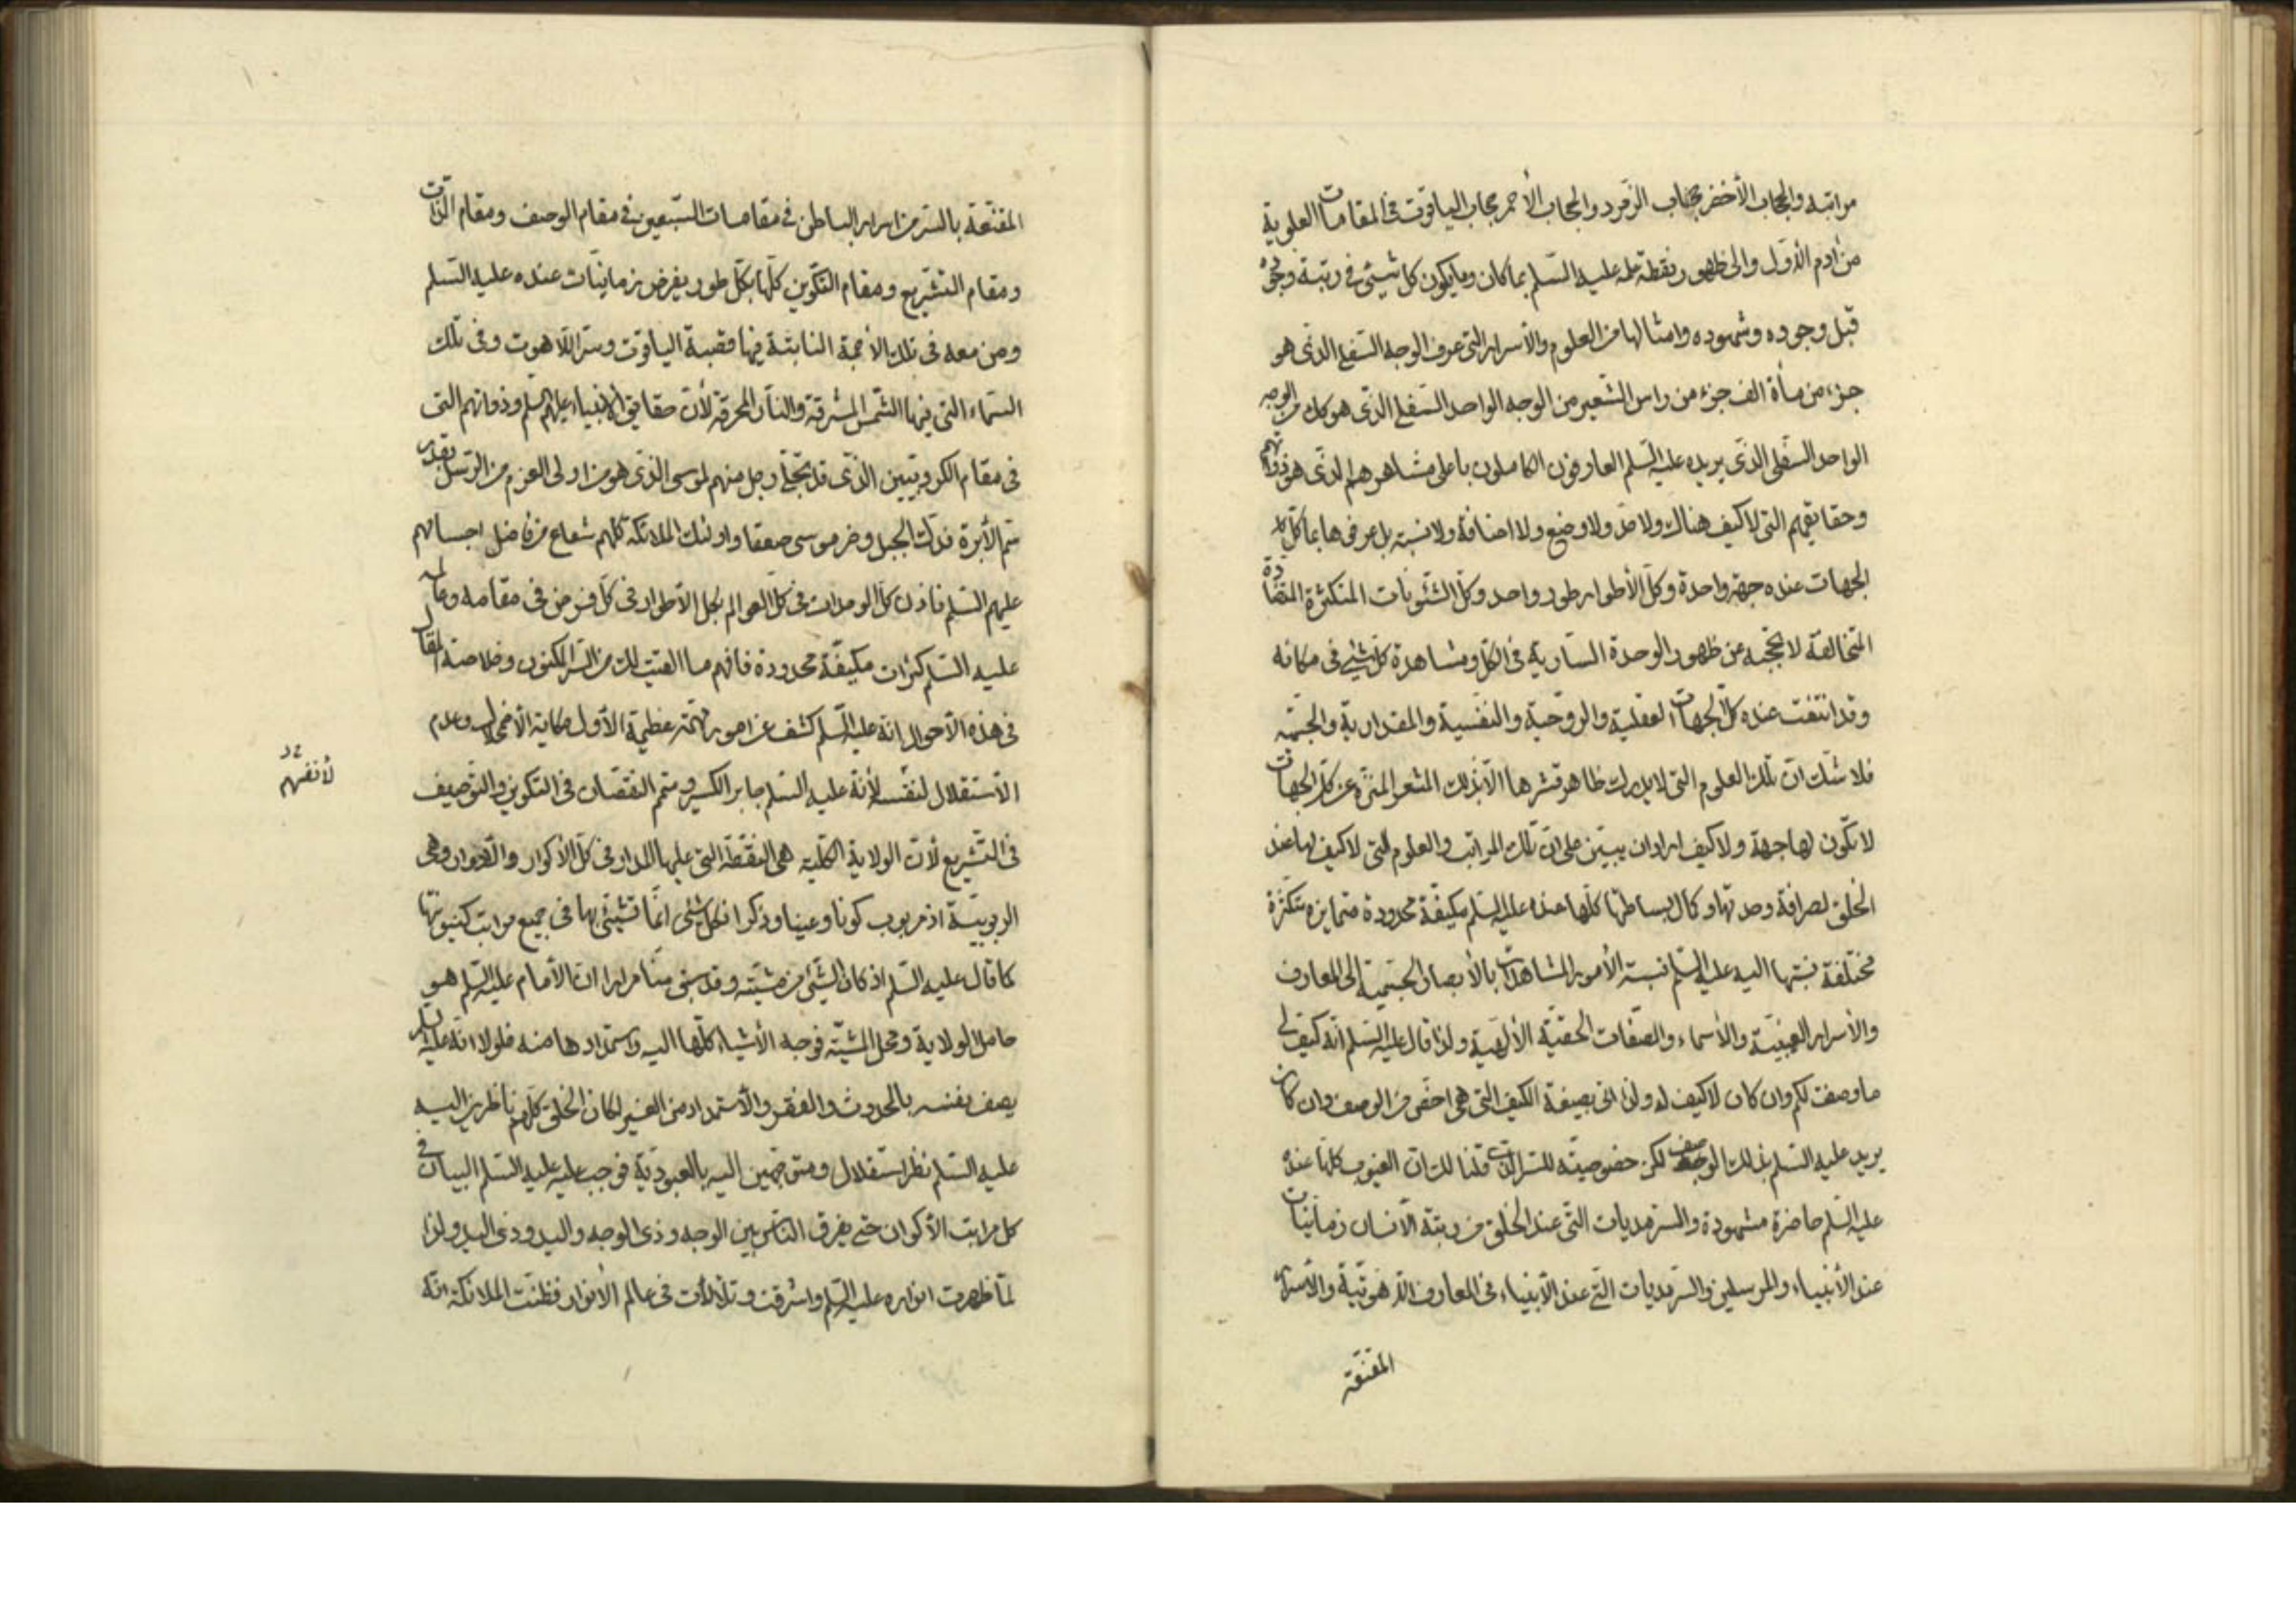 مراتبه والحجاب الأخضر حجاب الزمرد والحجاب الأحمر حجاب الياقوت في المقامات العلوية
من آدم الأول والى ظهور نقطة عليه السلم بما كان وما يكون كل شيئ في رتبة وجوده
قبل وجوده وشهوده وامثالها من العلوم والأسرار التي عرف الوجه السفلي الذي هو
جزء من مأة الف جزء من راس الشعير من الوجه الواحد السفلي الذي هو كك من الوجه
الواحد السفلي الذي يريده عليه السلم العارفون الكاملون باعلى مشاعرهم الذي هو ذواتهم
وحقايقهم التي لا كيف هناك ولا حد ولا وضع ولا اضافة ولا نسبة بل عرفها بما كل
الجهات عنده جهة واحدة وكل الأطوار طور واحد وكل الشئونات المتكثرة المتضادة
المتخالفة لا تحجبه عن ظهور الوحدة السارية في الكل ومشاهدة كل شيئ في مكانه
وقد انتفت عنده كل الجهات العقلية والروحية والنفسية والمقدارية والجسمية
فلا شك ان تلك العلوم التي لا يدرك ظاهر قشرها الا بذلك المشعر المنزه عن كل الجهات
لا تكون لها جهة ولا كيف اراد ان يبين على ان تلك المراتب والعلوم التي لا كيف لها عند
الخلق لصرافة وحدتها وكمال بساطتها كلها عنده عليه السلم مكيفة محدودة متمايزه متكثرة
مختلفة نسبتها اليه عليه السلم نسبة الأمور المشاهدات بالأبصار الجسمية الى المعارف
والأسرار الغيبية والأسماء والصفات الحقية الألهية ولذا قال عليه السلم انه كيف لي
ما وصفت لكم وان كان لا كيف له ولذا اتى بصيغة الكيف التي هي اخص من الوصف وان كان
يريد عليه السلم بذلك الوصف لكن خصوصيته للسر الذي قلنا لك ان الغيوب كلها عنده
عليه السلم حاضرة مشهودة والسرمديات التي عند الخلق من رتبة الانسان زمانيات
عند الأنبياء والمرسلين والسرمديات التي عند الأنبياء في المعارف اللاهوتية والأسرار
المقنعة
المقنعة بالسر من اسرار الباطن في مقامات السبعين في مقام الوصف ومقام الذات
ومقام التشريع ومقام التكوين كلها بكل طور يفرض زمانيات عنده عليه السلم
ومن معه في تلك الاجمة النابتة فيها قصبة الياقوت وسر اللاهوت وفي تلك
السماء التي فيها الشمس المشرقة والنار المحرقة لأن حقايق الانبياء عليهم السلم وذواتهم التي
في مقام الكروبيين الذي قد تجلى رجل منهم لموسى الذي هو من اولى العزم من الرسل بقدر
سم الأبرة فدك الجبل وخر موسى صعقا واولئك الملائكة كلهم شعاع من فاضل اجسامهم
عليهم السلم فاذن كل الوحدات في كل العوالم بكل الأطوار في كل فرض في مقامه وعالمه
عليه السلم كثرات مكيفة محدودة فافهم ما القيت لك من السر المكنون وخلاصة المقال
في هذه الأحوال انه عليه السلم كشف عن امور مهمة عظيمة الأول حكاية الاضمحلال وعدم
الأستقلال لنفسه لأنه عليه السلم جابر الكسر ومتمم النقصان في التكوين والتوصيف
لأنفسهم
في التشريع لأن الولاية الكلية هي النقطة التي عليها المدار في كل الأكوار والأدوار وهي
الربوبية اذ مربوب كونا وعينا وذكرا فكل شيئ انما تشيئ بها في جميع مراتب كينونتها
كما قال عليه السلم اذ كان الشيئ من مشيته وقد سبق منا مرارا ان الأمام عليه السلم هو
حامل الولاية ومحل المشية فوجه الأشياء كلها اليه واستمدادها منه فلولا انه عليه السلم
يصف نفسه بالحدوث والفقر والأستمداد من الغير لكان الخلق كلهم ناظرين اليه
عليه السلم نظر استقلال ومتوجهين اليه بالعبودية فوجب عليه عليه السلم البيان في
كل مراتب الأكوان حتى يفرق الناس بين الوجه وذى الوجه واليد وذى اليد ولذا
لما ظهرت انواره عليه السلم واشرقت وتلألأت في عالم الأنوار فظنت الملائكة انه